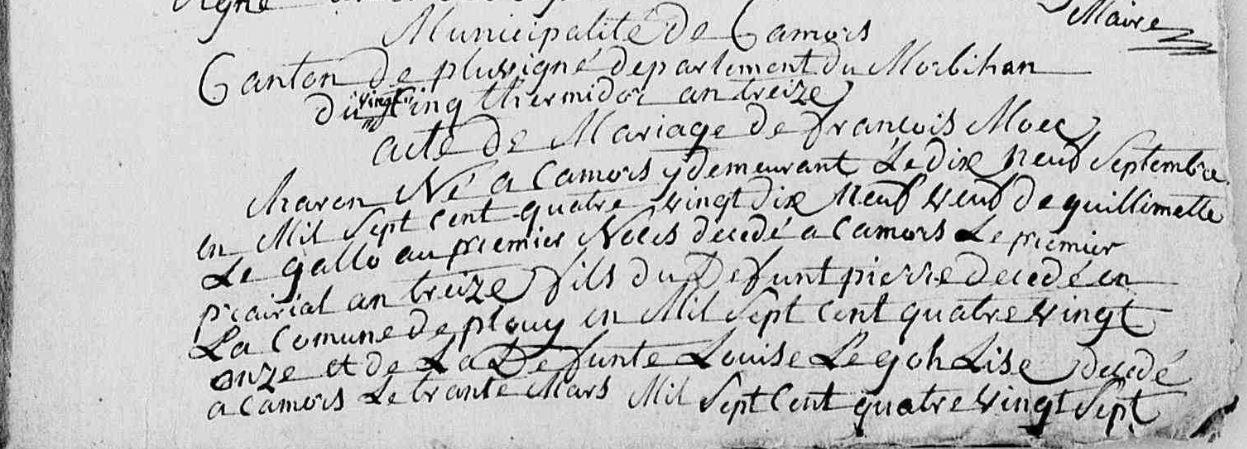 Signé
Maire
Municipalité De Camors
Canton De pluvigné departement du Morbihan
du vingt Cinq thermidor an treize
acte De Mariage De françois Moec
Né a Camors y demeurant Le dix neuf Septembre
en Mil Sept Cent quatre vingt dix Neuf veuf De guillimette
Le gallo au premier Noces decedé a Camors Le premier
prairial an treize fils du Defunt pierre decedé en
La Comune De plouy en Mil Sept Cent quatre vingt
onze et de La Defunte Louise Le goh Lise decedé
a Camors Le trante Mars Mil Sept Cent quatre vingt Sept